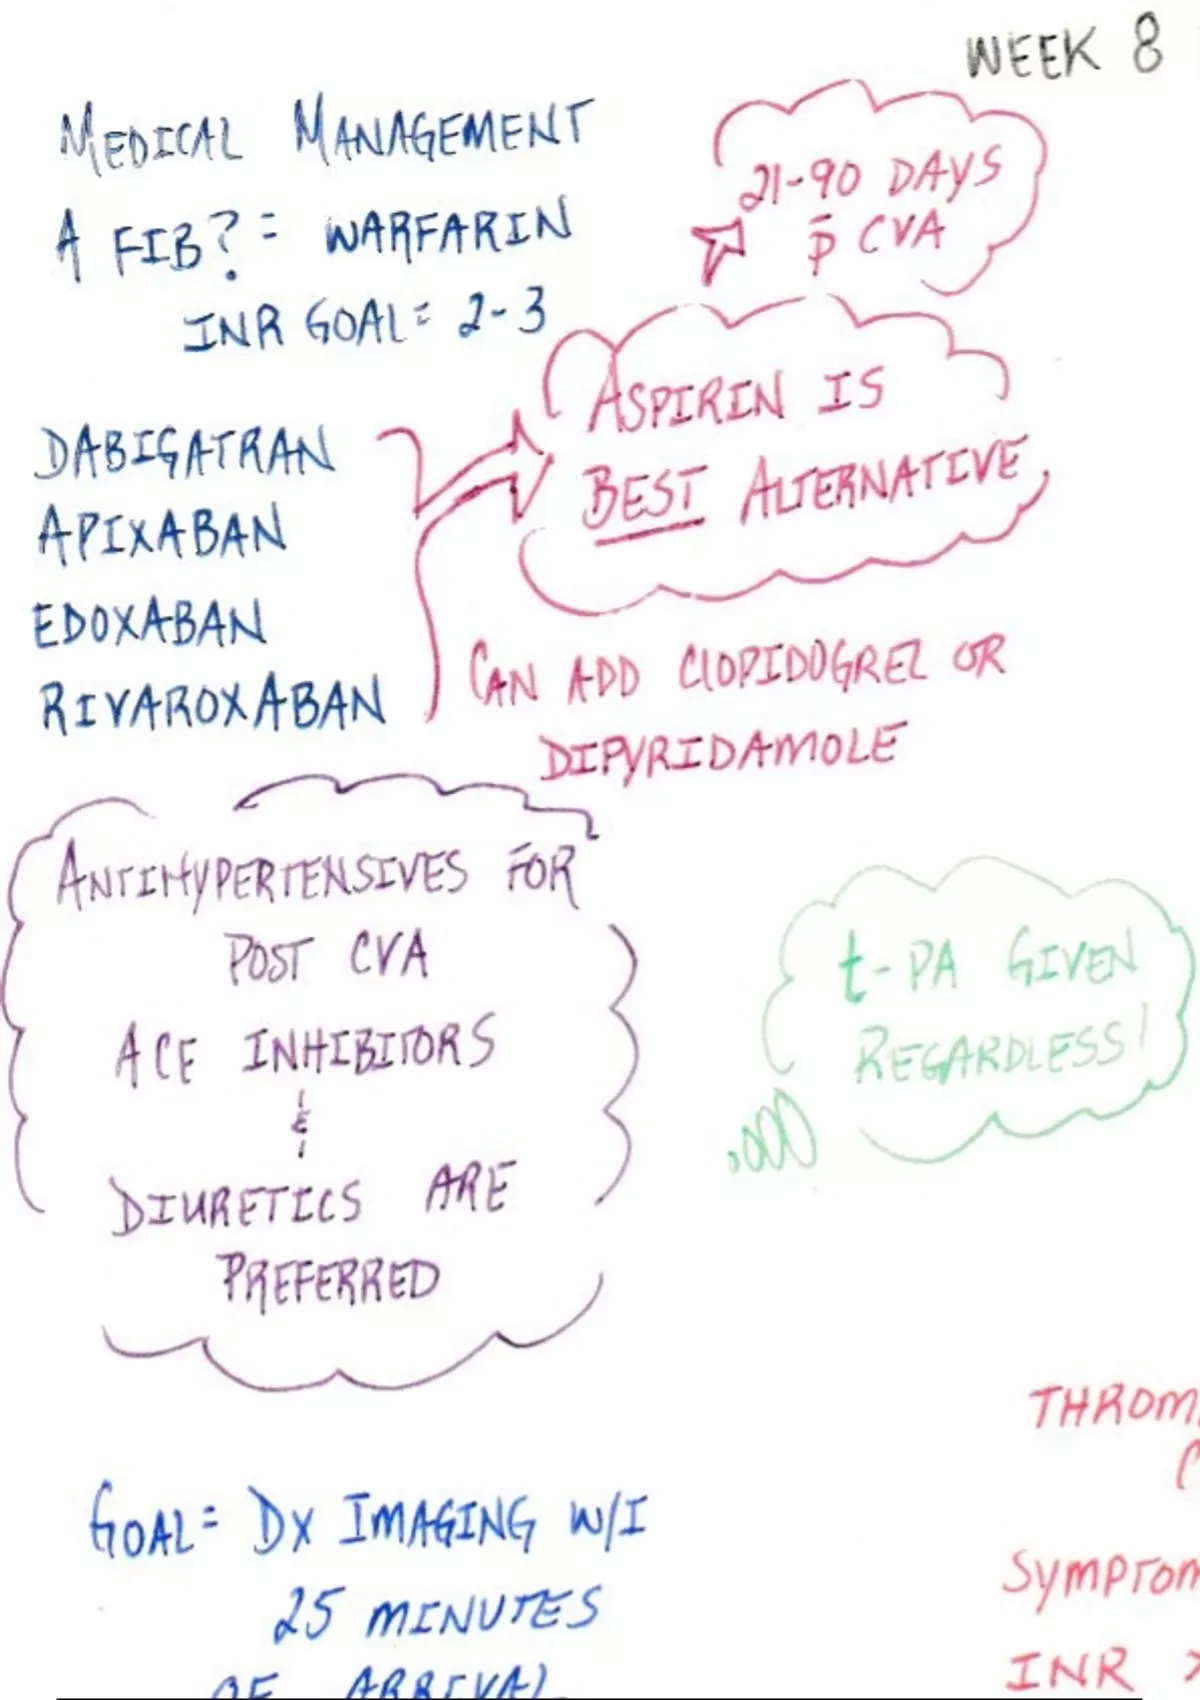 WEEK 8
MEDICAL MANAGEMENT
A FIB? = WARFARIN
INR GOAL = 2-3
21-90 DAYS
p̄ CVA
ASPIRIN IS
BEST ALTERNATIVE,
DABIGATRAN
APIXABAN
EDOXABAN
RIVAROXABAN
CAN ADD CLOPIDOGREL OR
DIPYRIDAMOLE
ANTIHYPERTENSIVES FOR
POST CVA
ACE INHIBITORS
&
DIURETICS ARE
PREFERRED
t-PA GIVEN
REGARDLESS!
THROM
GOAL = DX IMAGING W/I
25 MINUTES
OF ARRIVAL
SYMPTOM
INR >